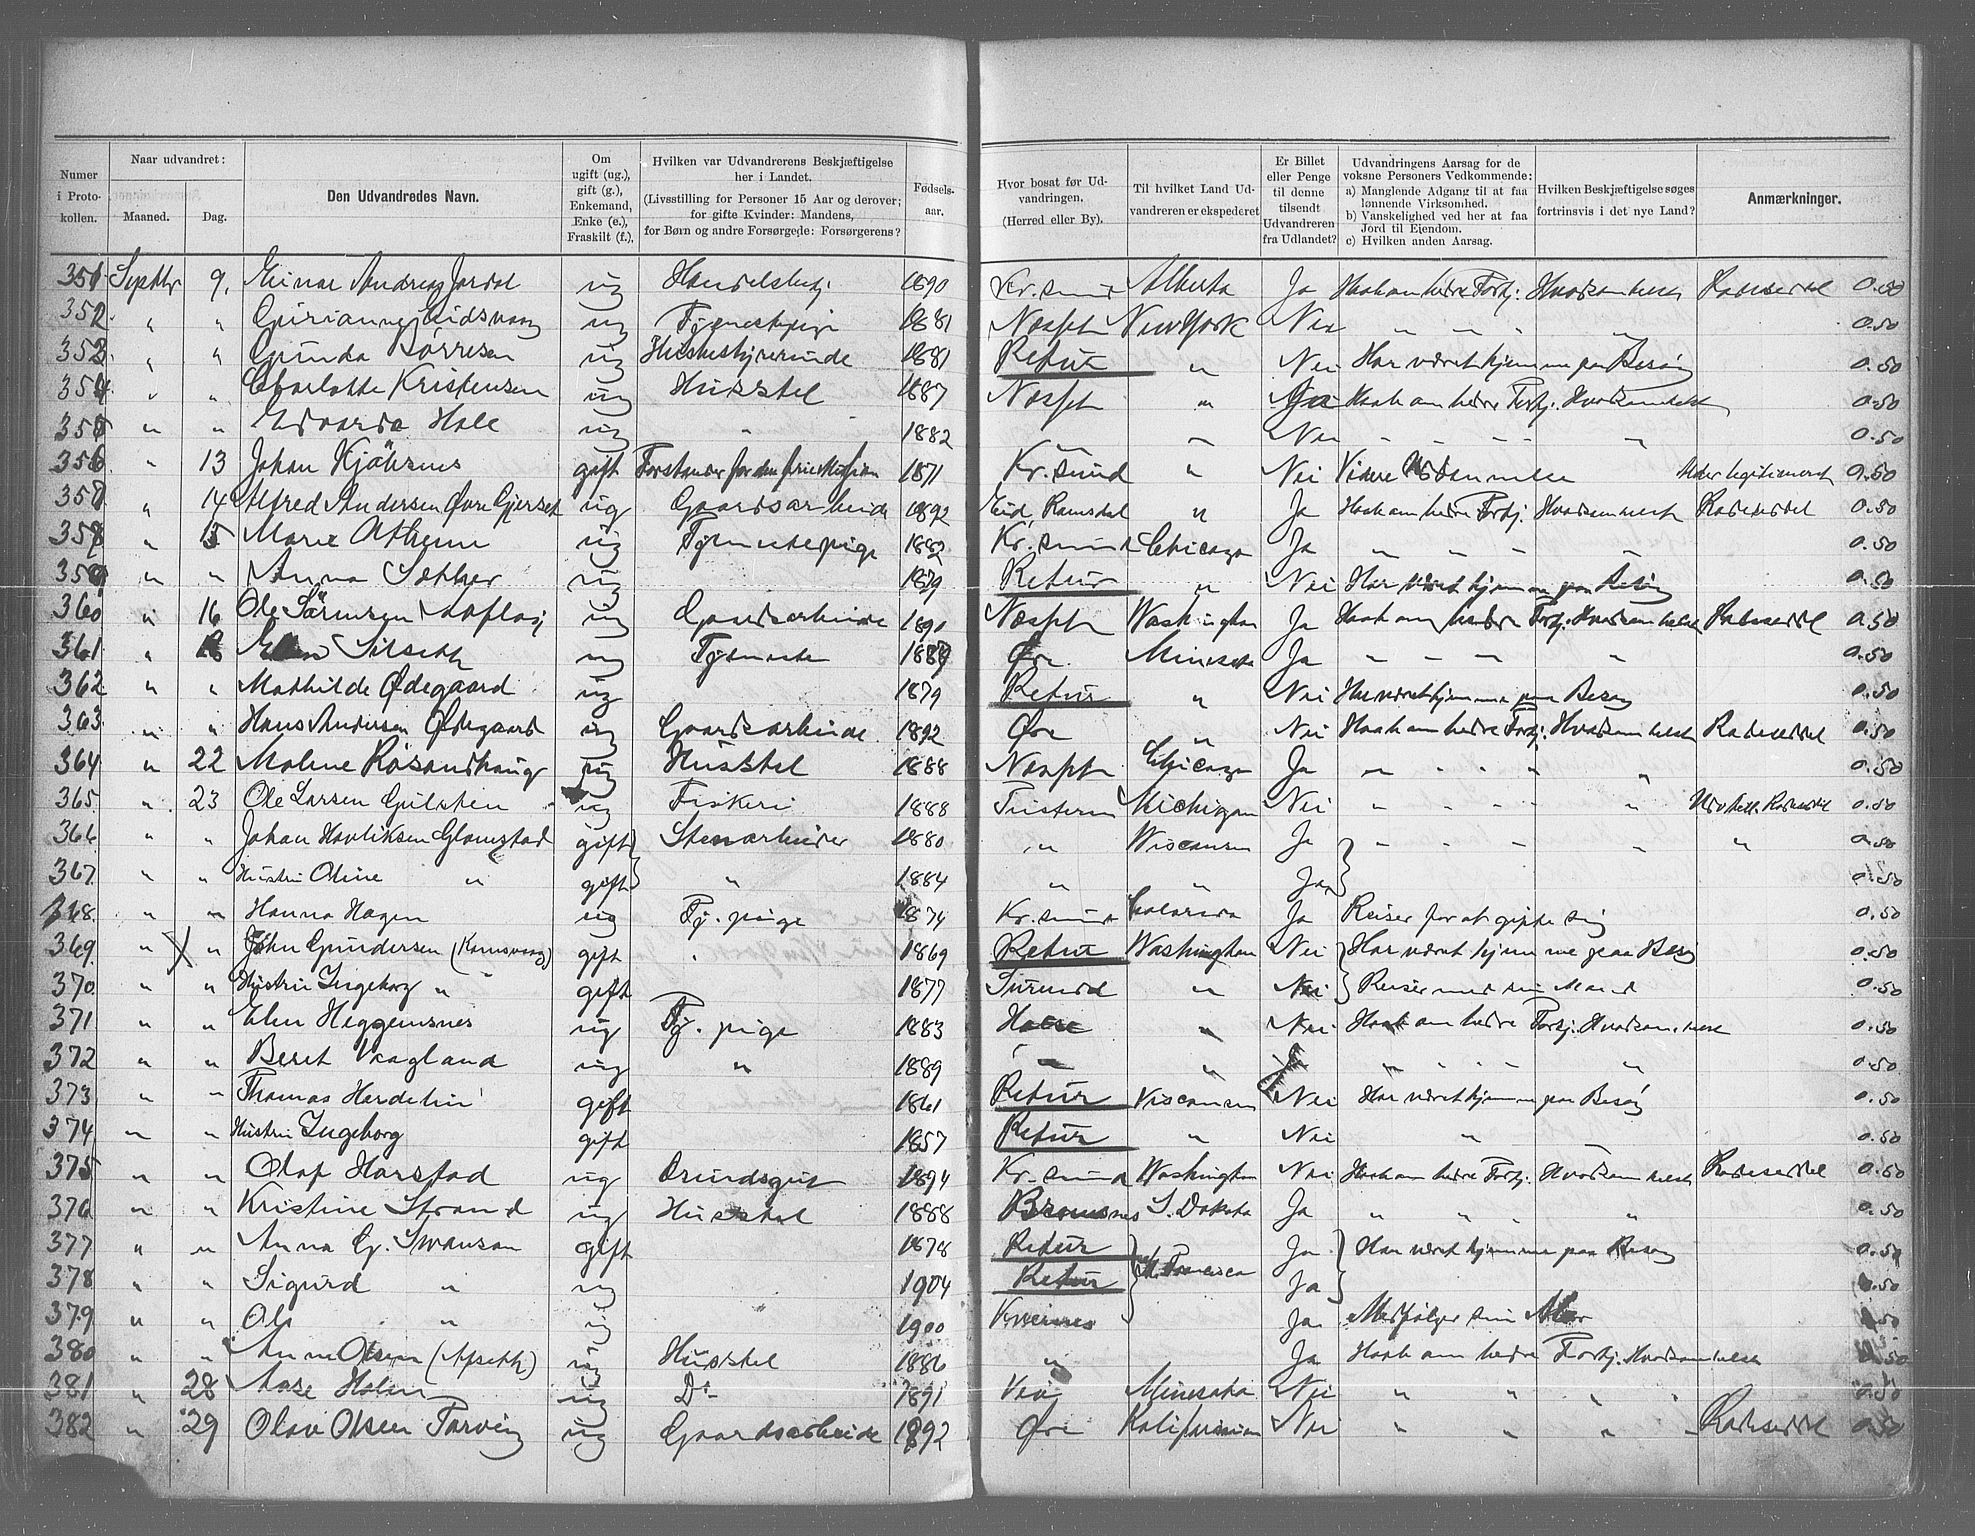 Numer i Protokollen. | Naar udvandret: Maaned. Dag. | Den Udvandredes Navn. | Om ugift (ug.), gift (g.), Enkemand, Enke (e.), Fraskilt (f.). | Hvilken var Udvandrerens Beskjæftigelse her i Landet. (Livsstilling for Personer 15 Aar og derover; for gifte Kvinder: Mandens, for Børn og andre Forsørgede: Forsørgerens? | Fødselsaar. | Hvor bosat før Udvandringen. (Herred eller By). | Til hvilket Land Udvandreren er ekspederet | Er Billet eller Penge til denne tilsendt Udvandreren fra Udlandet? | Udvandringens Aarsag for de voksne Personers Vedkommende: a) Manglende Adgang til at faa lønnende Virksomhed. b) Vanskelighed ved her at faa Jord til Eiendom. c) Hvilken anden Aarsag. | Hvilken Beskjæftigelse søges fortrinsvis i det nye Land? | Anmærkninger.
351 Septbr 9. Einar Andreas Jordal ug 1890 Kr.sund Alberta Ja Haab om bedre Fortj. Hvadsomhelst Rulleseddel 0.50
352 " " ug Tjenestepige 1881 Næsset New York Nei " " " " 0.50
353 " " Gunda Börresen ug Husbestyrerinde 1881 Retur " Nei Har været hjemme paa Besøg 0.50
354 " " Charlotte Kristensen ug Husstel 1887 Næsset " Ja Haab om bedre Fortj. Hvadsomhelst 0.50
355 " " Edvarda Hole ug " 1882 " " Nei " " " " 0.50
356 " 13 Johan Kjöhsnes gift Forstander for den frie Mission 1871 Kr.sund " Nei Videre Uddannelse 0.50
357 " 14 Alfred Andersen Øvre Gjerset ug Gaardsarbeide 1892 Eid, Romsdal " Ja Haab om bedre Fortj. Hvadsomhelst Rulleseddel 0.50
358 " 15 Marie Otheim ug Tjenestepige 1882 Kr.sund Chicago Ja " " " " 0.50
359 " " Anna Sæther ug 1879 Retur " Nei Har været hjemme paa Besøg 0.50
360 " 16 Ole Sörensen ug Gaardsarbeide 1890 Næsset Washington Ja Haab om bedre Fortj. Hvadsomhelst Rulleseddel 0.50
361 " Silseth ug Tjeneste Øre Minesota Ja " " " " 0.50
362 " " Mathilde Ødegaard ug 1879 Retur " Nei Har været hjemme paa Besøg 0.50
363 " " Hans Andersen Ødegaard ug Gaardsarbeide 1892 Øre " Nei Haab om bedre Fortj. Hvadsomhelst Rulleseddel 0.50
364 " 22 Malene Rösandhaug ug Husstel 1888 Næsset Chicago Ja " " " " 0.50
365 " 23 Ole Larsen Gulsten ug Fiskeri 1888 Tusteren Michigan Nei " " " " Rulleseddel 0.50
366 " " Johan Henriksen Glamstad gift Stenarbeider 1880 " Wisconsin Ja " " " " " 0.50
367 " " Hustru Oline " gift " 1884 " " Ja 0.50
368 " " Hanna Hagen ug Tj. pige 1874 Kr.sund Colorado Ja Reiser for at gifte sig 0.50
369 " " John Gundersen (Ramsvaag) gift " 1869 Retur Washington Nei Har været hjemme paa Besøg 0.50
370 " " Hustru Ingeborg " gift 1877 Surendal " Nei Reiser med sin Mand 0.50
371 " " Elen Heggemsnes ug Tj. pige 1883 Halse " Nei Haab om bedre Fortj. Hvadsomhelst 0.50
372 " " Beret Vaagland ug " 1889 " " " " " " 0.50
373 " " Thomas Hendelin gift 1861 Retur Visconsin Nei Har været hjemme paa Besøg 0.50
374 " " Hustru Ingeborg gift 1857 Retur " Nei " 0.50
375 " " Olaf Harstad ug Brundsgut 1894 Kr.sund Washington Nei Haab om bedre Fortj. Hvadsomhelst Rulleseddel 0.50
376 " " Kristine Strand ug Husstel 1888 Bremsnes S. Dakota Ja " " " 0.50
377 " " Anna G. Swanson gift 1878 Retur St. Francisco Ja Har været hjemme paa Besøg 0.50
378 " " Sigurd " ug 1904 Retur Ja 0.50
379 " " Ole " ug 1900 Kvernes Ja Medfølger sin Mor 0.50
380 " " Anne Olsen (Apseth) ug Husstel 1886 " Ja Haab om bedre Fortj. Hvadsomhelst 0.50
381 " 28 Aase Holen ug Do 1891 Vevi Minesota Nei " " " 0.50
382 " 29 Olav Olsen Torvig ug Gaardsarbeide 1892 Øre Kalifornien Nei " " " Rulleseddel 0.50